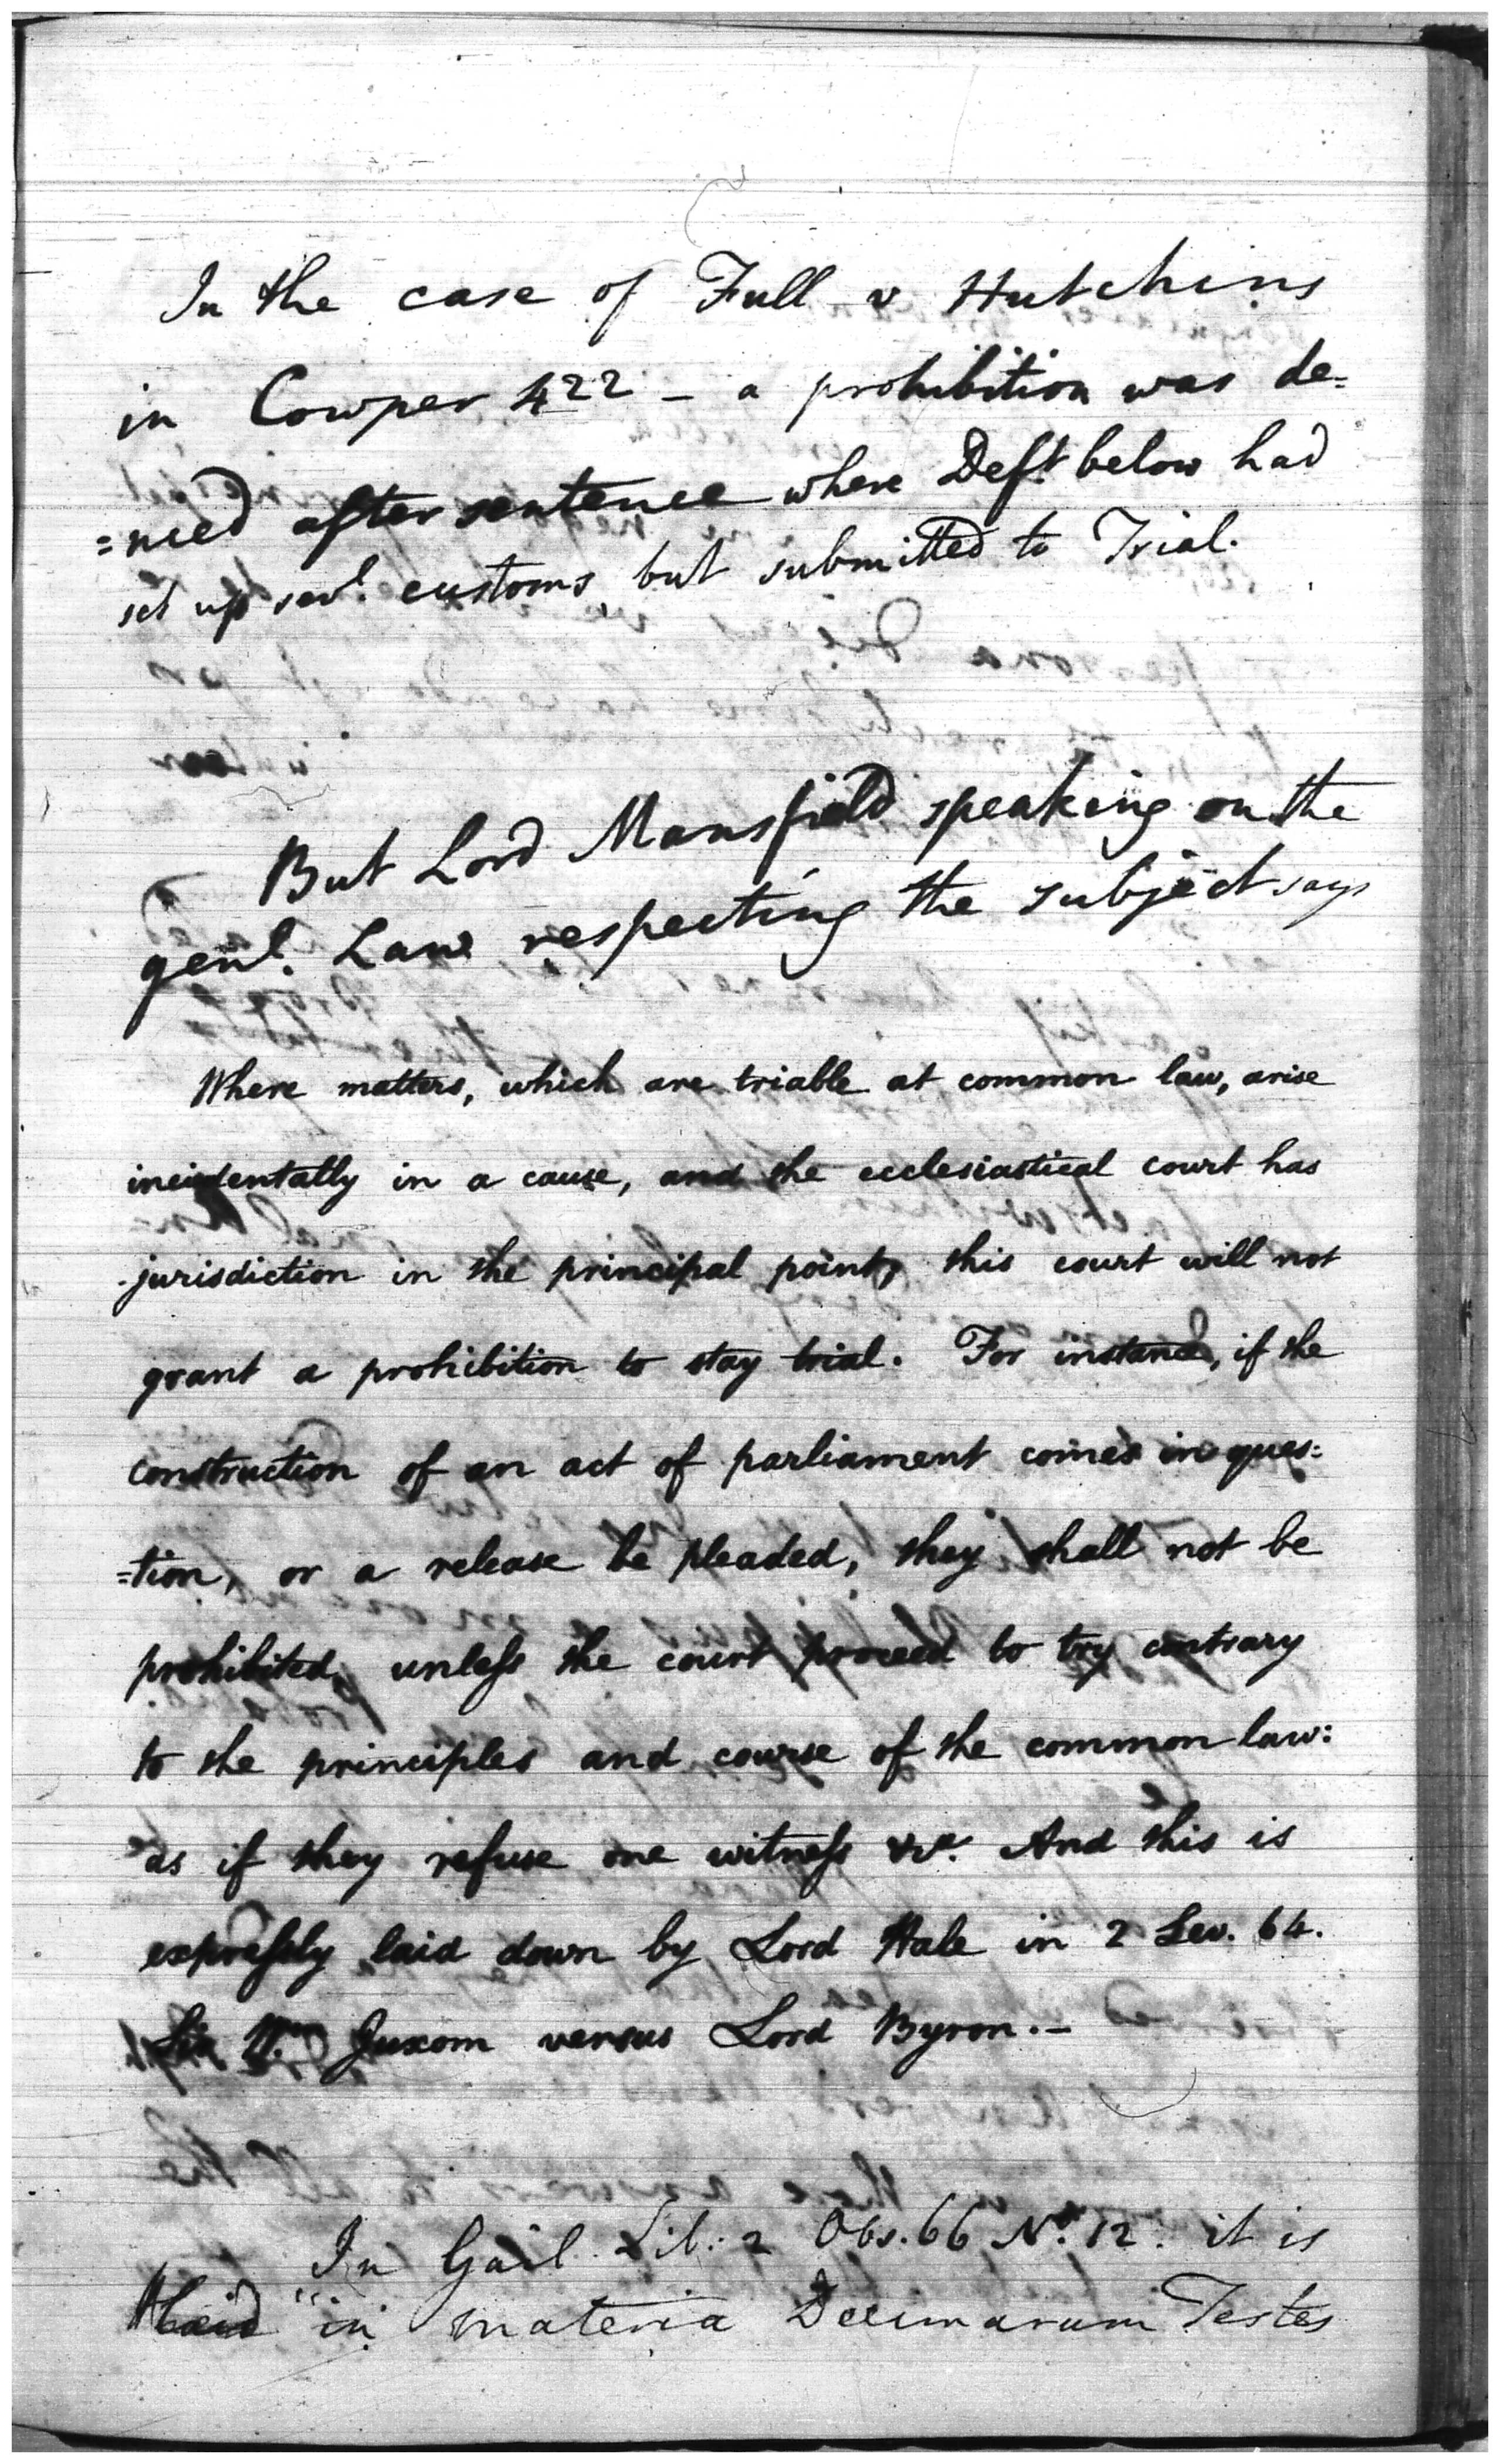 In the case of Full v Hutchins
in Cowper 422 – a prohibition was de=
=nied after sentence where Deft. below had
set up sevl. customs, but submitted to Trial.
But Lord Mansfield speaking on the
genl. Law respecting the subject says
Where matters, which are triable at common law, arise
incidentally in a cause, and the ecclesiastical court has
jurisdiction in the principal point, this court will not
grant a prohibition to stay trial. For instance, if the
construction of an act of parliament comes in ques=
=tion, or a release be pleaded, they shall not be
prohibited, unless the court proceed to try contrary
to the principles and course of the common law:
as if they refuse one witness &c. And this is
expressly laid down by Lord Hale in 2 Lev. 64.
Sir Wm. Juxom versus Lord Byron.–
In Gail Lib: 2 Obs. 66 No. 12. it is
"in materia Decimarum Testes